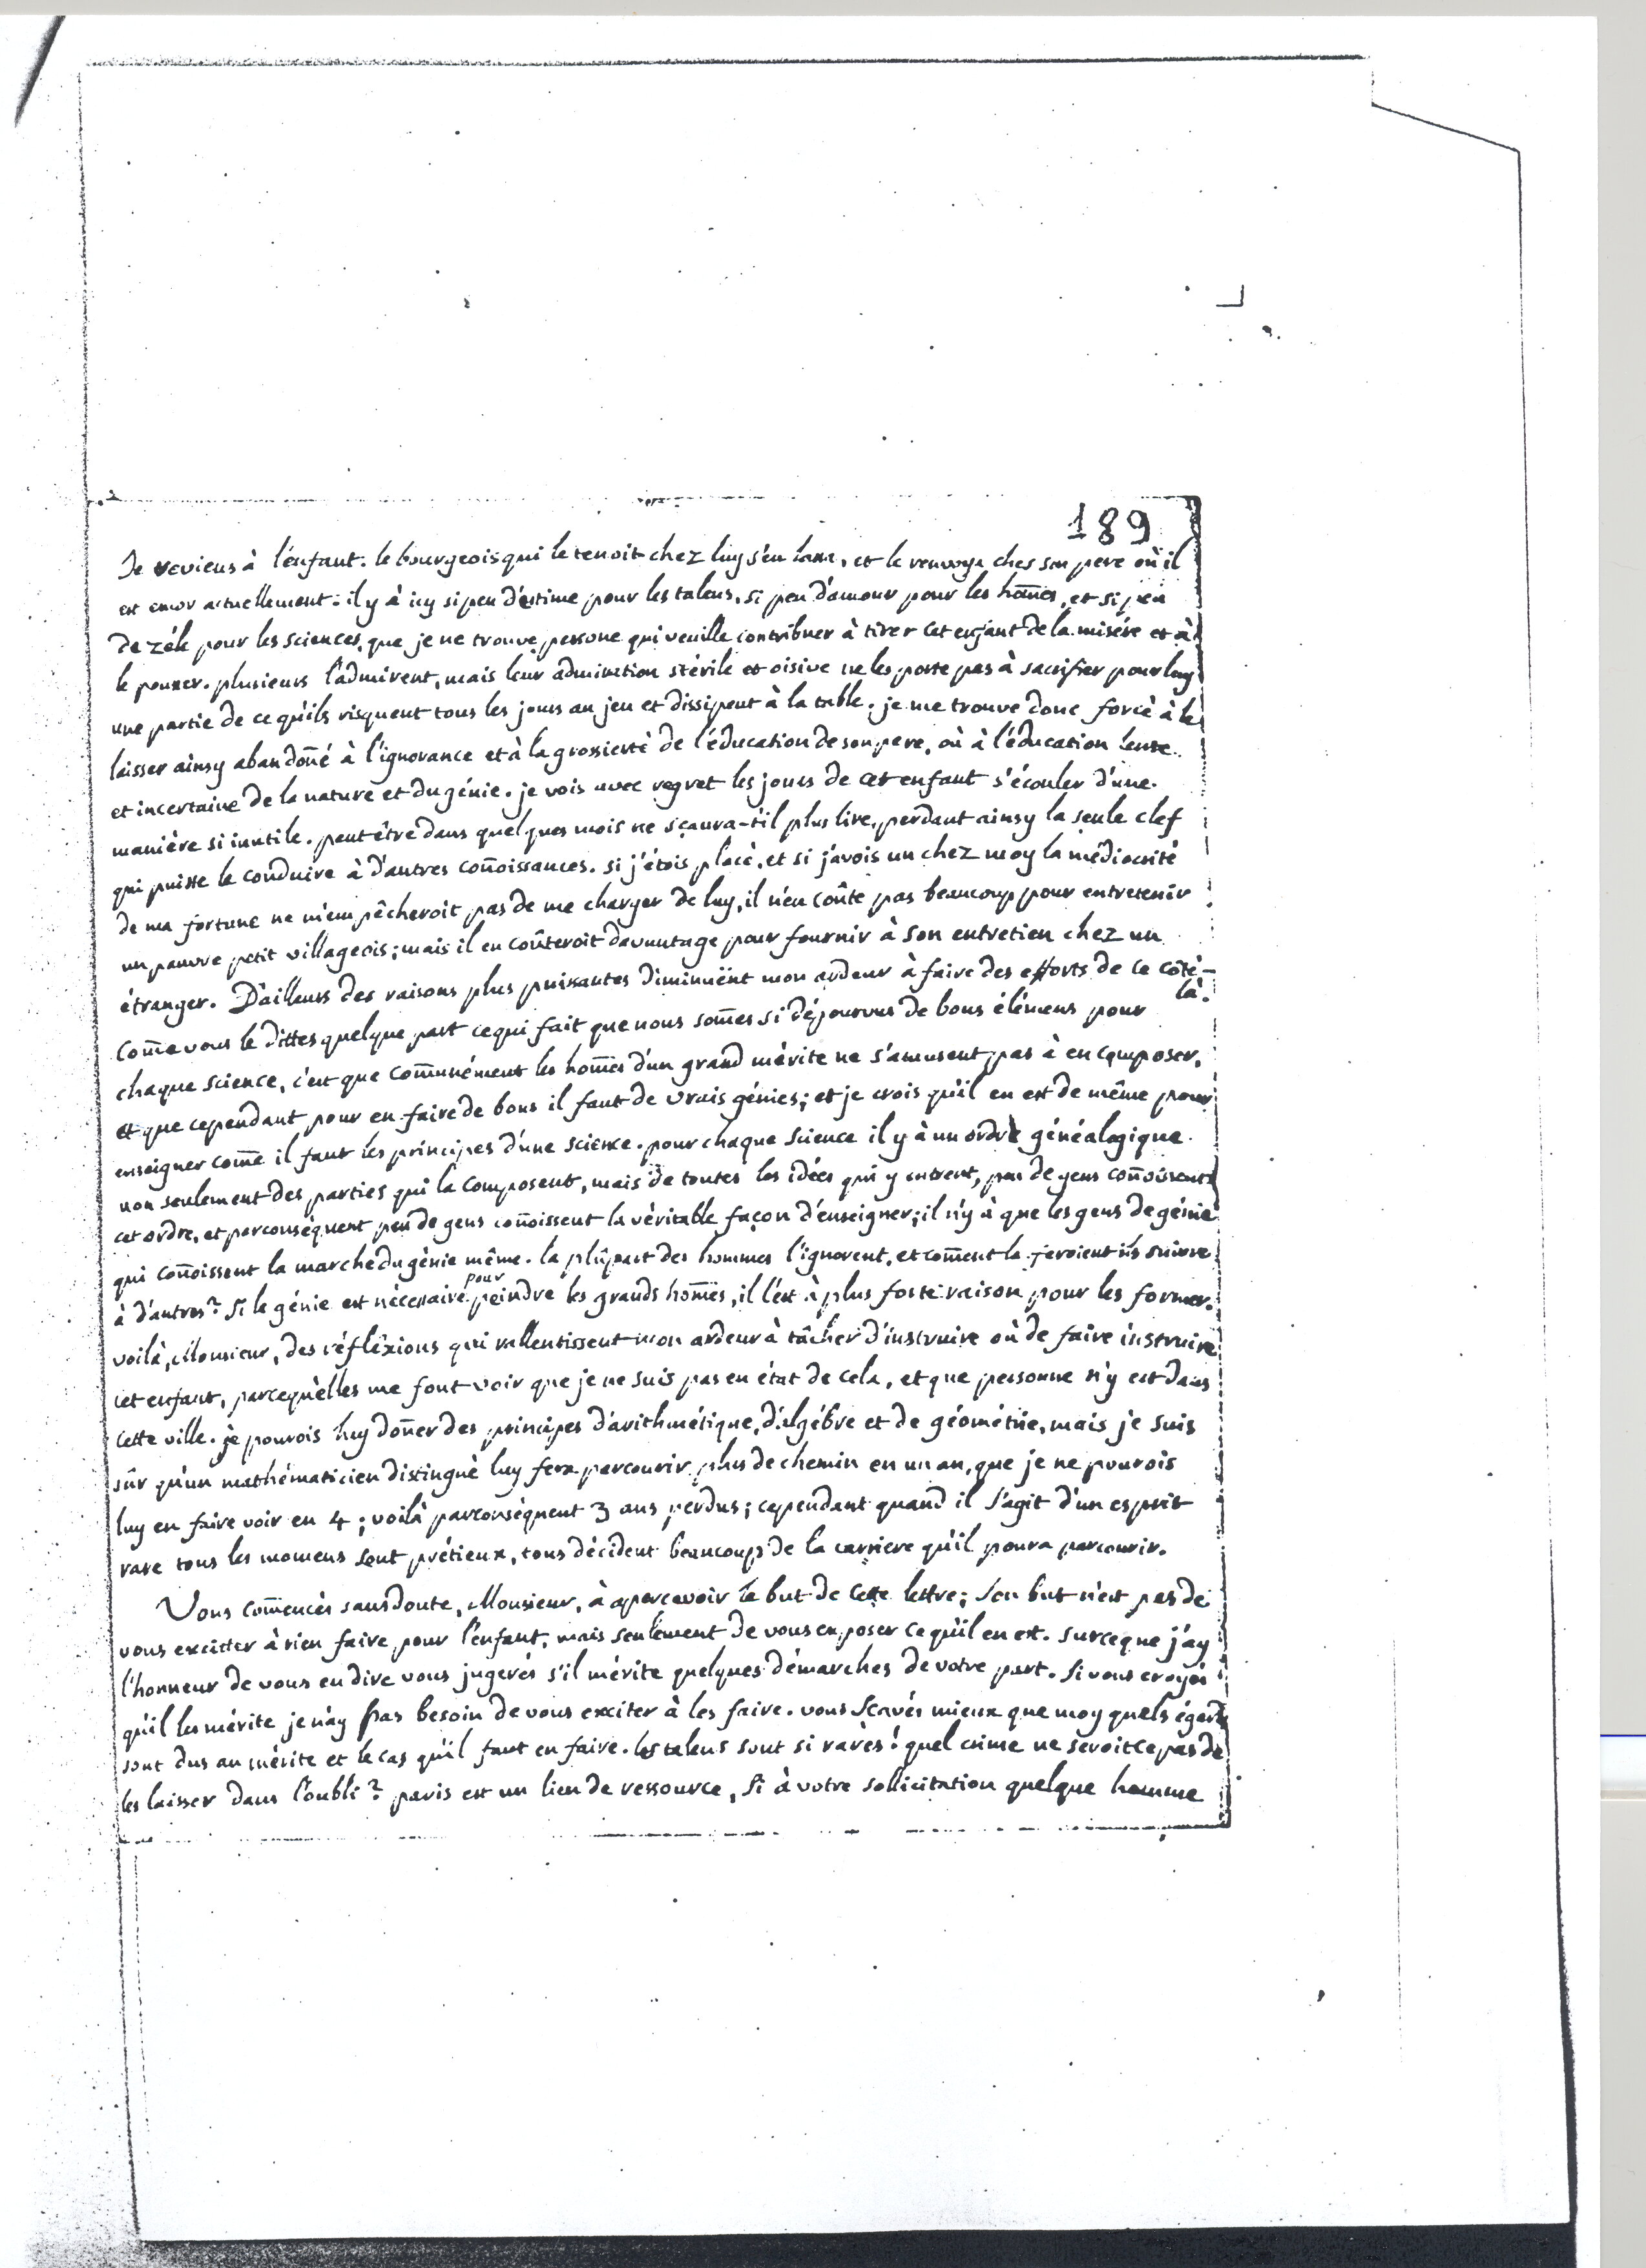 189
Je reviens à l'enfant. le bourgeois qui le tenoit chez luy s'en lassa, et le renvoya ches son pere où il
est encor actuellement: il y à icy si peu d'estime pour les talens, si peu d'amour pour les hom̄es, et si peu
de zéle pour les sciences, que je ne trouve persone qui veuille contribuer à tirer cet enfant de la misére et à
le pousser. plusieurs l'admirent, mais leur admiration stérile et oisive ne les porte pas à sacrifier pour luy
une partie de ce qu'ils risquent tous les jours au jeu et dissipent à la table. je me trouve donc forcé à le
laisser ainsy abandon̄é à l'ignorance et à la grossierté de l'éducation de son pere, où à l'éducation lente
et incertaine de la nature et du génie. je vois avec regret les jours de cet enfant s'écouler d'une
manière si inutile. peut être dans quelques mois ne sçaura-t'il plus lire, perdant ainsy la seule clef
qui puisse le conduire à d'autres con̄oissances. si j'étois placé, et si j'avois un chez moy la médiocrité
de ma fortune ne m'empêcheroit pas de me charger de luy, il n'en coûte pas beaucoup pour entretenir
un pauvre petit villageois; mais il en coûteroit davantage pour fournir à son entretien chez un
étranger. D'ailleurs des raisons plus puissantes diminuënt mon ardeur à faire des efforts de ce côté-
là.
Com̄e vous le dittes quelque part ce qui fait que nous som̄es si dépourvus de bons élémens pour
chaque science, c'est que com̄unément les hom̄es d'un grand mérite ne s'amusent pas à en composer,
et que cependant pour en faire de bons il faut de vrais génies; et je crois qu'il en est de même pour
enseigner com̄e il faut les principes d'une science. pour chaque science il y à un ordre généalogique
non seulement des parties qui la composent, mais de toutes les idées qui y entrent, peu de gens con̄oissent
cet ordre, et parconséquent peu de gens con̄oissent la véritable façon d'enseigner; il n'y à que les gens de génie
qui con̄oissent la marche du génie même. la plûpart des hommes l'ignorent, et com̄ent la feroient ils suivre
à d'autres? Si le génie est nécessaire pour peindre les grands hom̄es, il l'est à plus forte raison pour les former.
voilà, Monsieur, des réfléxions qui rallentissent mon ardeur à tâcher d'instruire où de faire instruire
cet enfant, parcequ'elles me font voir que je ne suis pas en état de cela, et que personne n'y est dans
cette ville. je pourois luy don̄er des principes d'arithmétique, d'algébre et de géométrie, mais je suis
sûr qu'un mathématicien distingué luy fera parcourir plus de chemin en un an, que je ne pourois
luy en faire voir en 4; voilà parconséquent 3 ans perdus; cependant quand il s'agit d'un esprit
rare tous les momens sont prétieux, tous décident beaucoup de la carriere qu'il poura parcourir.
Vous com̄encés sans doute, Monsieur, à apercevoir le but de cette lettre; son but n'est pas de
vous exciter à rien faire pour l'enfant, mais seulement de vous exposer ce qu'il en est. sur ce que j'ay
l'honneur de vous en dire vous jugerés s'il mérite quelques démarches de votre part. Si vous croyés
qu'il les mérite je n'ay pas besoin de vous exciter à les faire. vous sçavés mieux que moy quels égards
sont dus au mérite et le cas qu'il faut en faire. les talens sont si rares! quel crime ne seroit ce pas de
les laisser dans l'oubli? paris est un lieu de ressource, Si à votre sollicitation quelque homme